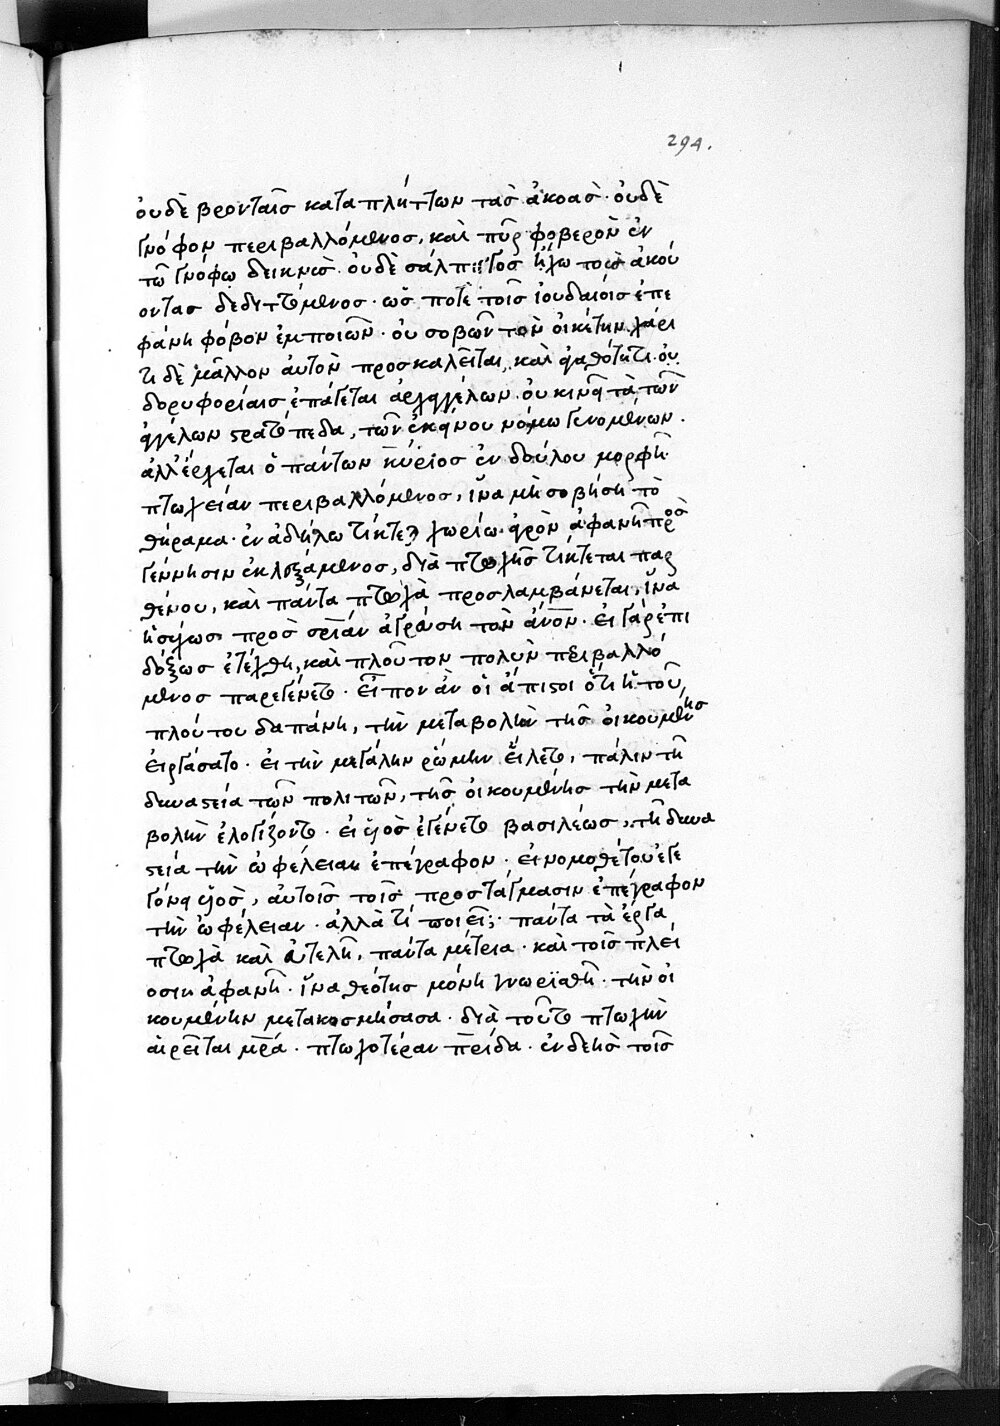 294.
οὐδὲ βρονταῖς καταπλήττων τὰς ἀκοάς· οὐδὲ
γνόφον περιβαλλόμενος, καὶ πῦρ φοβερὸν ἐν
τῶ γνόφω δεικνὺς· οὐδὲ σάλπιγγος ἤχω τοὺς ἀκού
οντας δεδιττόμενος· ὡς ποτὲ τοῖς ἰουδαίοις ἐπε
φάνη φόβον ἐμποιῶν· οὐ σοβῶν τὸν οἰκέτην χάρι
τι δὲ μᾶλλον αὐτὸν προσκαλεῖται, καὶ ἀγαθότητι· οὐ
δορυφορίαις ἐπάγεται ἀρχαγγέλων· οὐ κινεῖ τὰ τῶν
ἀγγέλων στρατόπεδα, τῶν ἐκείνου νόμω γενομένων·
ἀλλ' ἔρχεται ὁ πάντων κύριος ἐν δούλου μορφῆ
πτωχείαν περιβαλλόμενος, ἵνα μὴ σοβήση τὸ
θήραμα· ἐν ἀδήλω τίκτεται χωρίω· ἀγρὸν ἀφανῆ πρὸς
γέννησιν ἐκλεξάμενος, διὰ πτωχῆς τίκτεται παρ
θένου, καὶ πάντα πτωχὰ προσλαμβάνεται, ἵνα
ἡσύχως πρὸς σρίαν ἀγρεύση τὸν ἄνον· εἰ γὰρ ἐπι
δόξως ἐτέχθη, καὶ πλοῦτον πολὺν περιβαλλό
μενος παρεγένετο· εἶπον ἂν οἱ ἄπιστοι ὅτι ἡ τοῦ
πλούτου δαπάνη, τὴν μεταβολὴν τῆς οἰκουμένης
εἰργάσατο· εἰ τὴν μεγάλην ῥώμην εἵλετο, πάλιν τῆ
δυναστεία τῶν πολιτῶν, τῆς οἰκουμένης τὴν μετα
βολὴν ἐλογίζοντο· εἰ υἱὸς ἐγένετο βασιλέως, τῆ δυνα
στεία τὴν ὠφέλειαν ἐπέγραφον· εἰ νομοθέτου ἐγε
γόνει υἱὸς, αὐτοῖς τοῖς προστάγμασιν ἐπέγραφον
τὴν ὠφέλειαν· ἀλλὰ τί ποιεῖ; πάντα τὰ ἔργα
πτωχὰ καὶ εὐτελῆ, πάντα μέτρια· καὶ τοῖς πλεί
οσιν ἀφανῆ· ἵνα θεότης μόνη γνωρισθῆ· τὴν οἰ
κουμένην μετακοσμήσασα· διὰ τοῦτο πτωχὴν
αἱρεῖται μρα· πτωχοτέραν πρίδα· ἐνδεὴς τοῖς